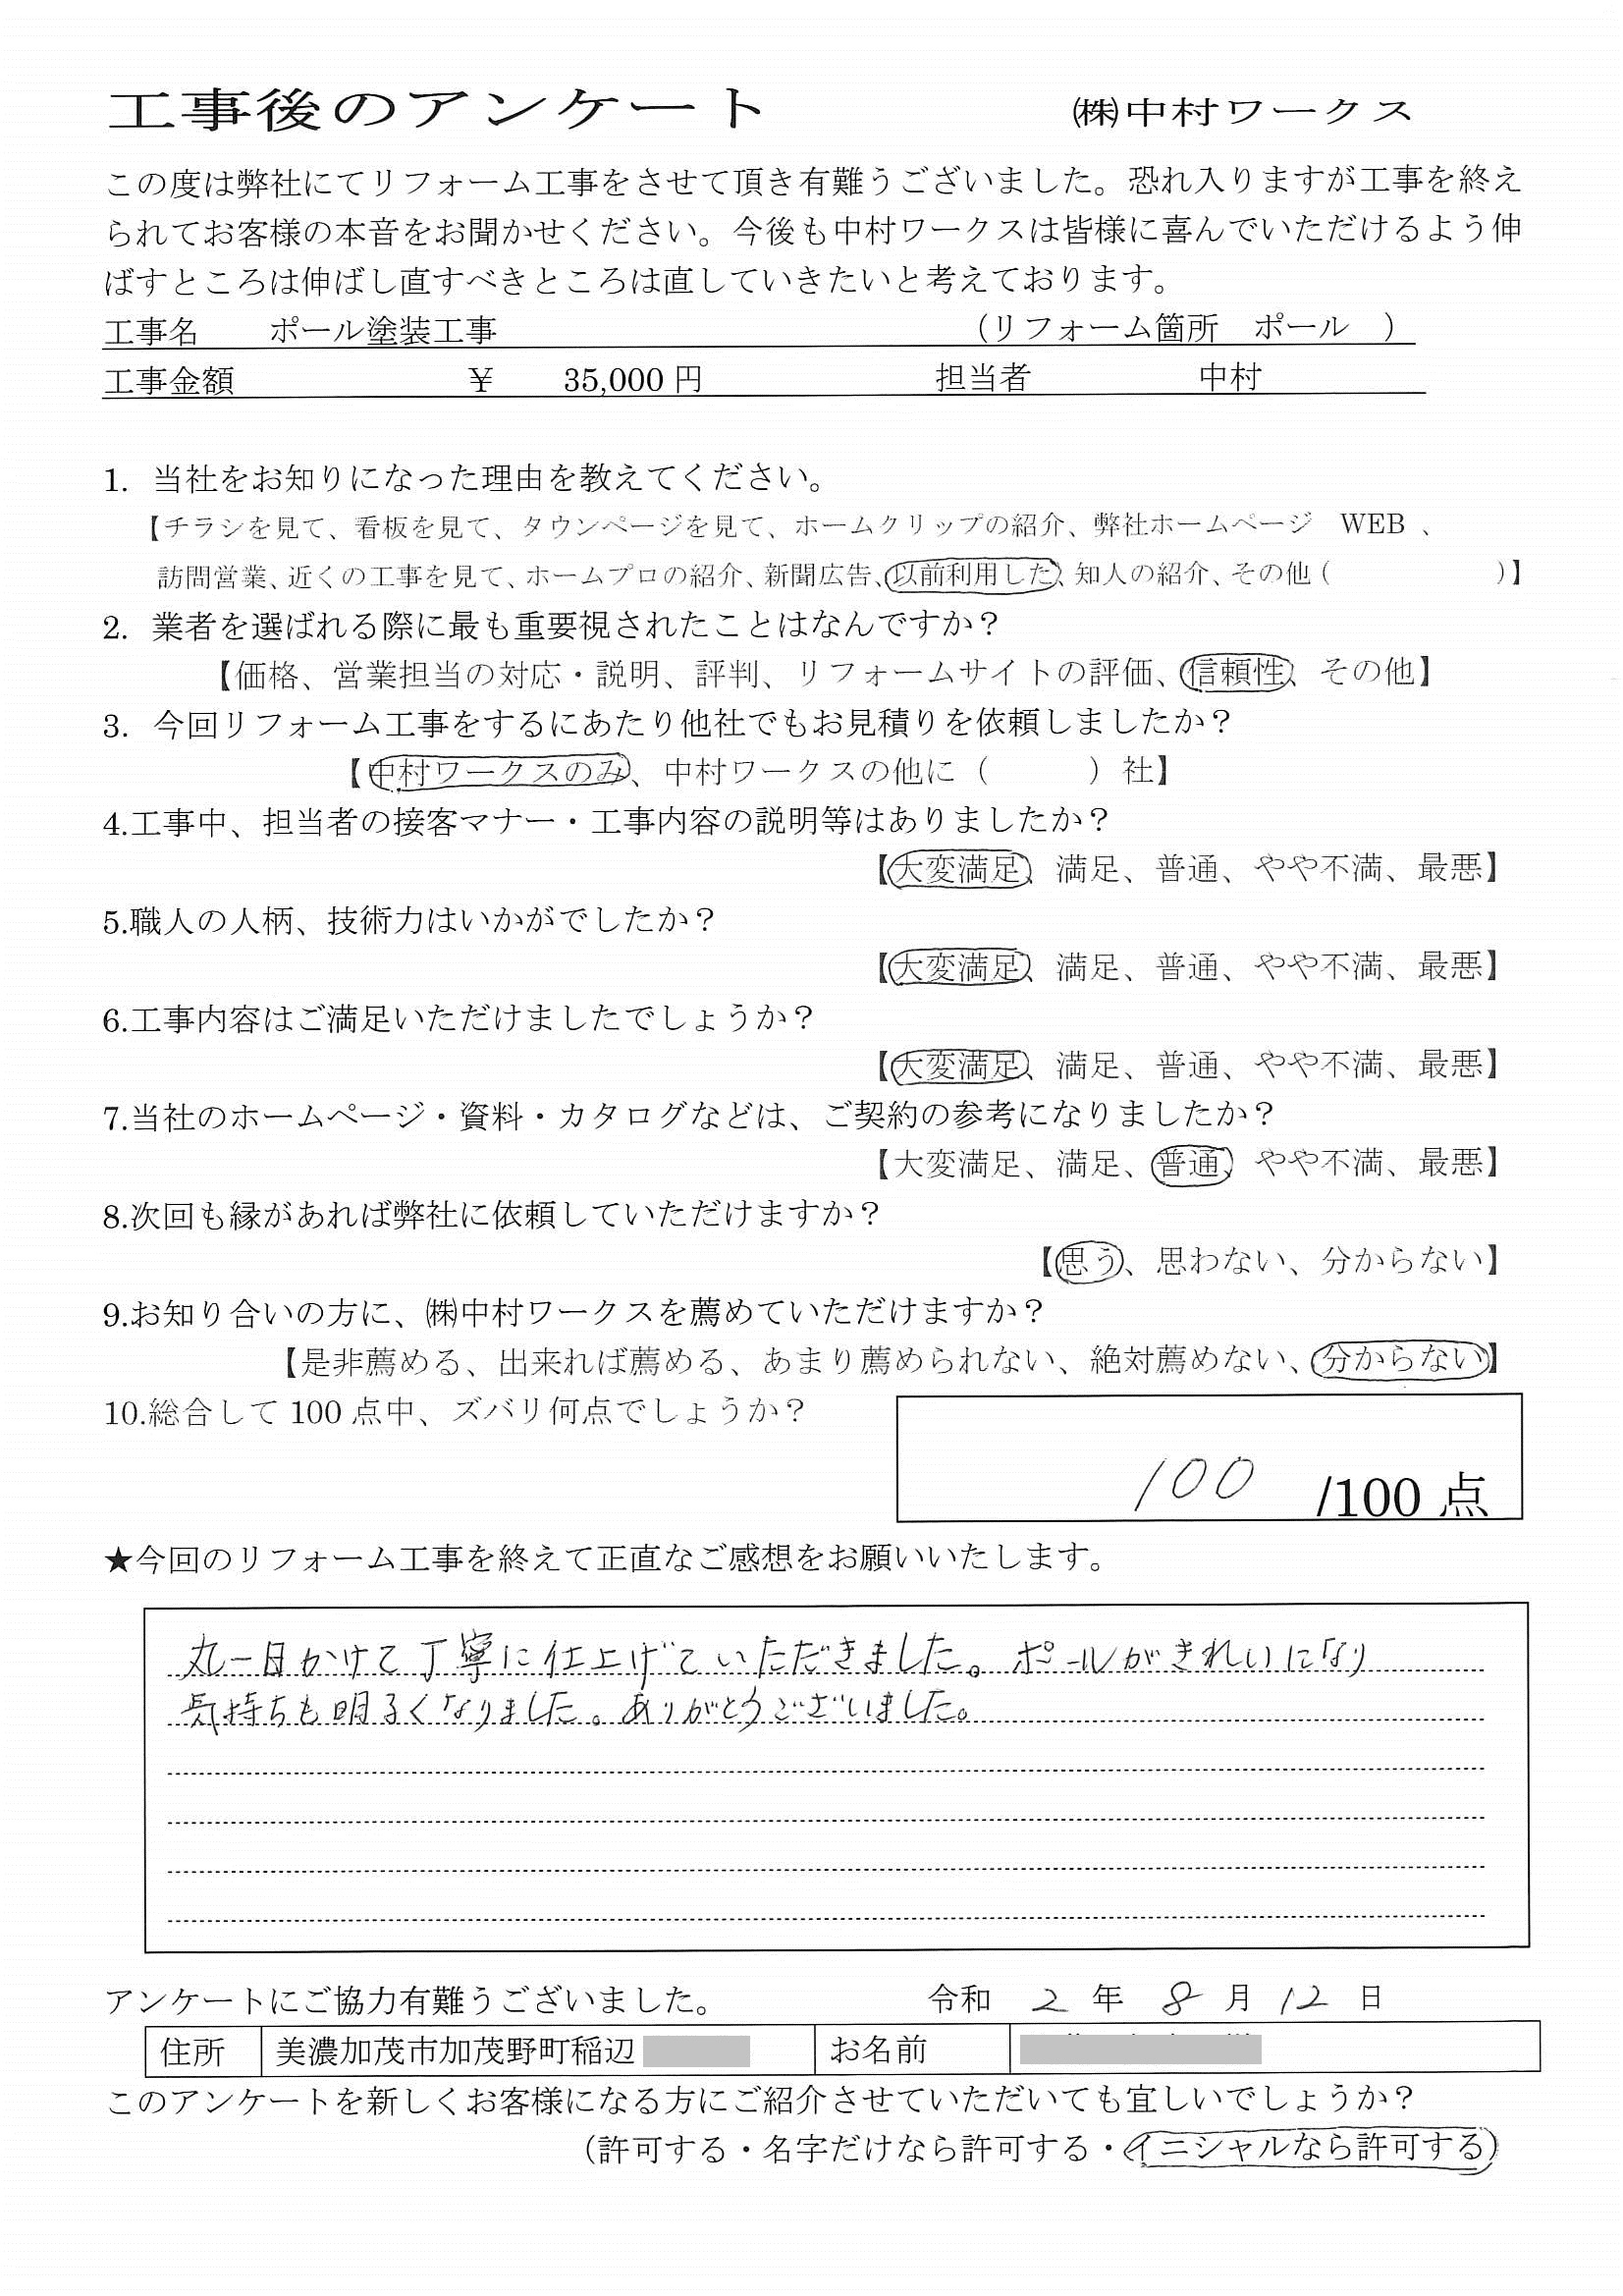 工事後のアンケート ㈱中村ワークス
この度は弊社にてリフォーム工事をさせて頂き有難うございました。恐れ入りますが工事を終え
られてお客様の本音をお聞かせください。今後も中村ワークスは皆様に喜んでいただけるよう伸
ばすところは伸ばし直すべきところは直していきたいと考えております。
工事名 ポール塗装工事 （リフォーム箇所 ポール ）
工事金額 ￥ 35,000 円 担当者 中村
1. 当社をお知りになった理由を教えてください。
【チラシを見て、看板を見て、タウンページを見て、ホームクリップの紹介、弊社ホームページ WEB 、
訪問営業、近くの工事を見て、ホームプロの紹介、新聞広告、以前利用した、知人の紹介、その他（ ）】
2. 業者を選ばれる際に最も重要視されたことはなんですか？
【価格、営業担当の対応・説明、評判、リフォームサイトの評価、信頼性、その他】
3. 今回リフォーム工事をするにあたり他社でもお見積りを依頼しましたか？
【中村ワークスのみ、中村ワークスの他に（ ）社】
4.工事中、担当者の接客マナー・工事内容の説明等はありましたか？
【大変満足、満足、普通、やや不満、最悪】
5.職人の人柄、技術力はいかがでしたか？
【大変満足、満足、普通、やや不満、最悪】
6.工事内容はご満足いただけましたでしょうか？
【大変満足、満足、普通、やや不満、最悪】
7.当社のホームページ・資料・カタログなどは、ご契約の参考になりましたか？
【大変満足、満足、普通、やや不満、最悪】
8.次回も縁があれば弊社に依頼していただけますか？
【思う、思わない、分からない】
9.お知り合いの方に、㈱中村ワークスを薦めていただけますか？
【是非薦める、出来れば薦める、あまり薦められない、絶対薦めない、分からない】
10.総合して 100 点中、ズバリ何点でしょうか？
100 /100 点
★今回のリフォーム工事を終えて正直なご感想をお願いいたします。
丸一日かけて丁寧に仕上げていただきました。ポールがきれいになり
気持ちも明るくなりました。ありがとうございました。
アンケートにご協力有難うございました。 令和 2 年 8 月 12 日
住所 美濃加茂市加茂野町稲辺 お名前
このアンケートを新しくお客様になる方にご紹介させていただいても宜しいでしょうか？
（許可する・名字だけなら許可する・イニシャルなら許可する）